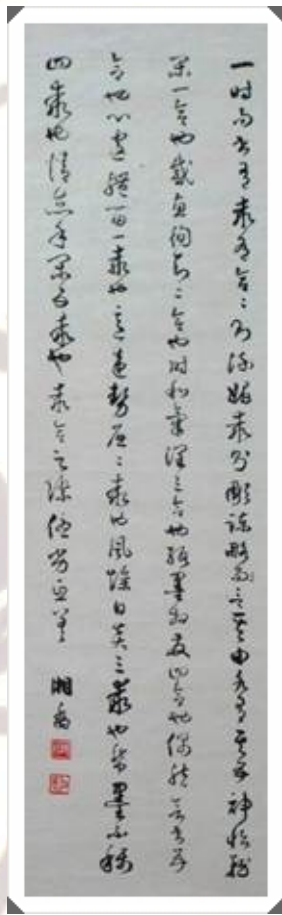 一時而書有乖有合合則流媚乖則彫疎略言其由各有其五神怡務
閑一合也感惠徇知二合也時和氣潤三合也紙墨相發四合也偶然欲書五
合也心遽體留一乖也意違勢屈二乖也風燥日炎三乖也紙墨不稱
四乖也情怠手闌五乖也乖合之際優劣互差
湘